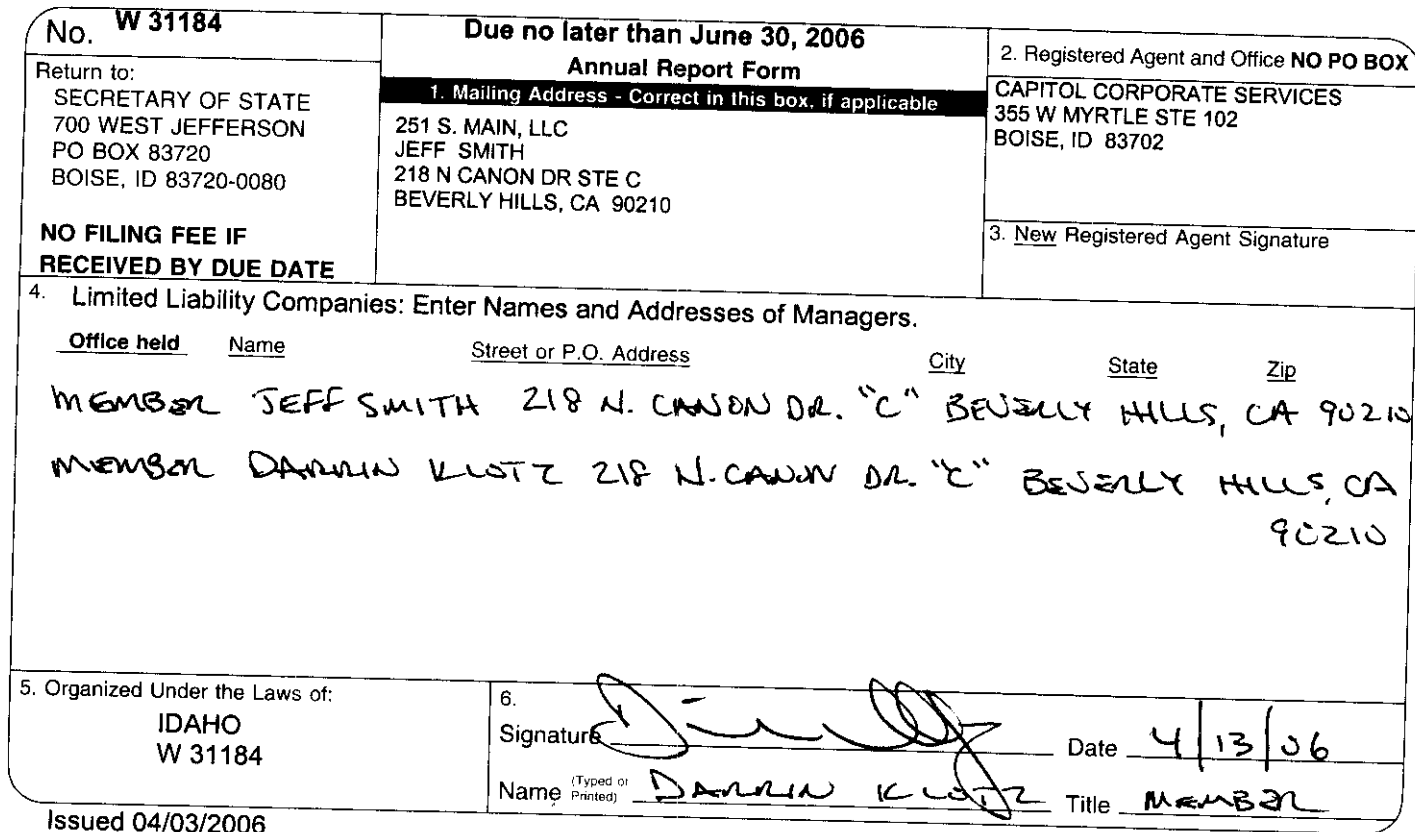 No. W 31184
Return to:
SECRETARY OF STATE
700 WEST JEFFERSON
PO BOX 83720
BOISE, ID 83720-0080
NO FILING FEE IF
RECEIVED BY DUE DATE
Due no later than June 30, 2006
Annual Report Form
1. Mailing Address - Correct in this box, if applicable
251 S. MAIN, LLC
JEFF SMITH
218 N CANON DR STE C
BEVERLY HILLS, CA 90210
2. Registered Agent and Office NO PO BOX
CAPITOL CORPORATE SERVICES
355 W MYRTLE STE 102
BOISE, ID 83702
3. New Registered Agent Signature
4. Limited Liability Companies: Enter Names and Addresses of Managers.
Office held Name Street or P.O. Address City State Zip
MEMBER JEFF SMITH 218 N. CANON DR. "C" BEVERLY HILLS, CA 90210
MEMBER DARRIN KLOTZ 218 N. CANON DR. "C" BEVERLY HILLS, CA
90210
5. Organized Under the Laws of:
IDAHO
W 31184
6.
Signature Date 4/13/06
Name (Typed or Printed) DARRIN KLOTZ Title MEMBER
Issued 04/03/2006